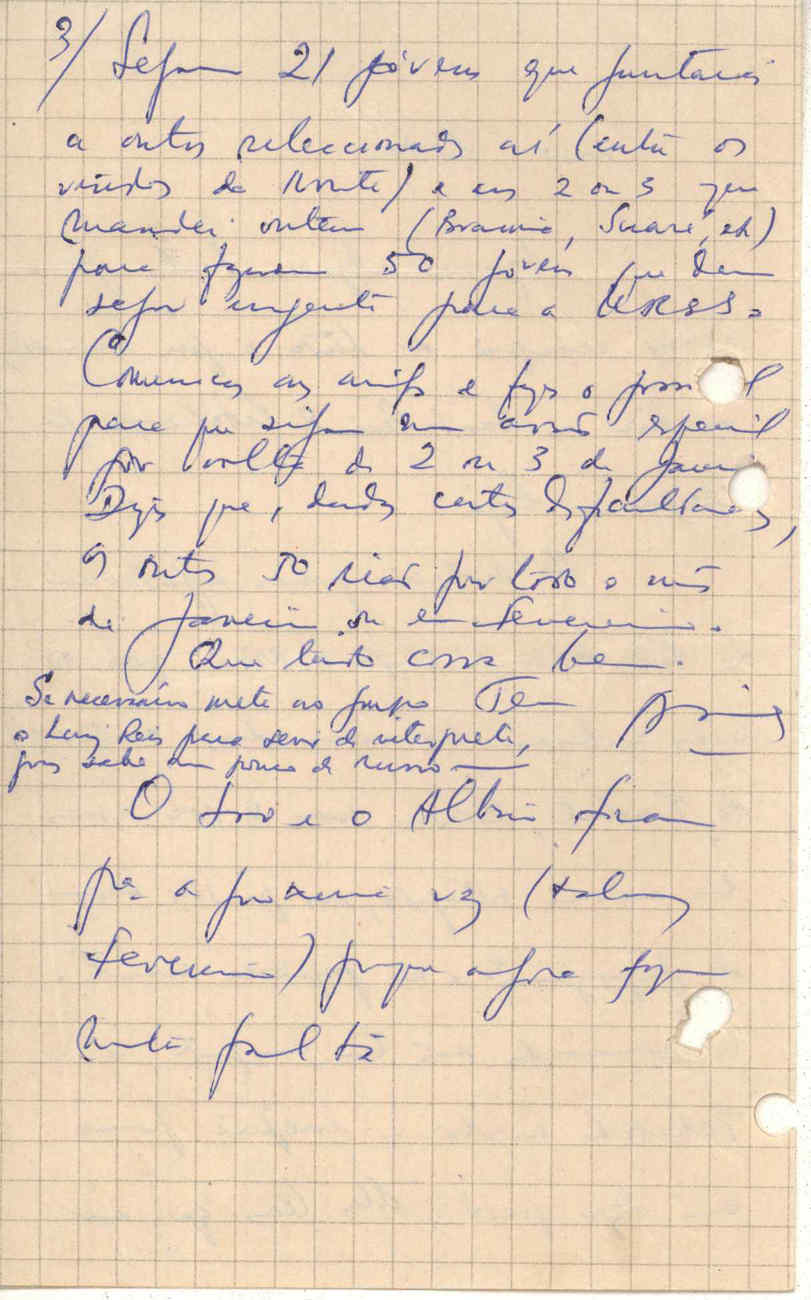 3/ Seguem 21 jóvens que juntarás
a outros seleccionados aí (entre os
vindos do Norte) e uns 2 ou 3 que
mandei ontem (Braima, etc)
para fazerem 50 jóvens que devem
seguir urgente para a URSS.
Comunica aos amigos e faz o possível
para que sigam em avião especial
por volta de 2 ou 3 de Janeiro
que, dadas certas dificuldades,
os outros 50 irão por todo o mês
de Janeiro ou em Fevereiro.
Que tudo corra bem.
Se necessário mete no grupo
o Luiz Reis para servir de intérprete,
pois sabe um pouco de russo
Teu
O e o Albino ficam
pra a próxima vez (talvez
Fevereiro) porque agora fazem
muita falta